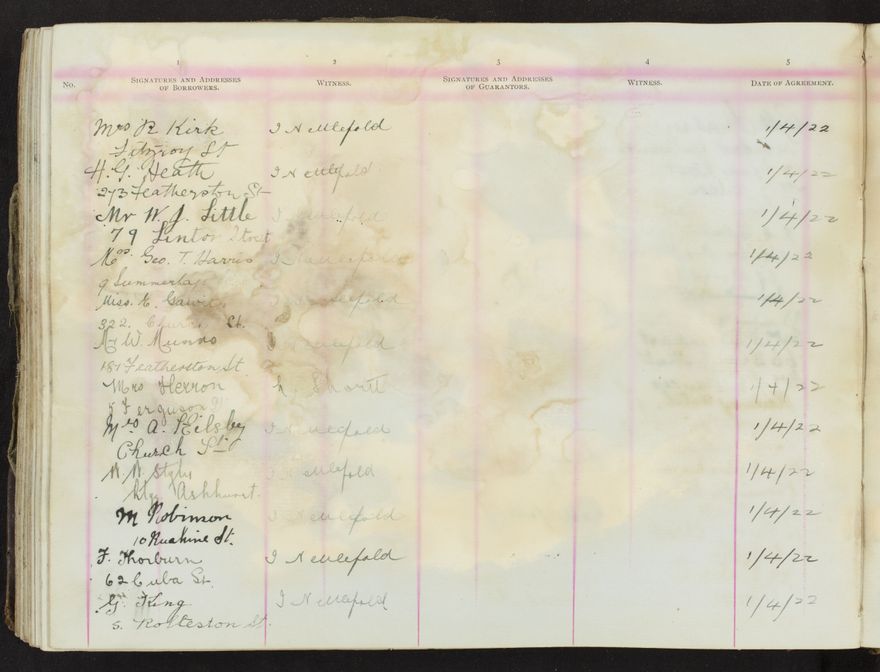 1 2 3 4 5
No. SIGNATURES AND ADDRESSES OF BORROWERS. WITNESS. SIGNATURES AND ADDRESSES OF GUARANTORS. WITNESS. DATE OF AGREEMENT.
Mrs R Kirk I Nettlefold 1/4/22
Fitzroy St
H. G. Heath I Nettlefold 1/4/22
273 Featherston St
Mr W. J. Little I Nettlefold 1/4/22
79 Linton Street
Mrs Geo. T. Harris I Nettlefold 1/4/22
9
Miss. I Nettlefold 1/4/22
322. Church St.
Mr W. Munro I Nettlefold 1/4/22
187 Featherston St
Mrs Herron 1/4/22
5 Ferguson St
Mrs A. Hilsby I Nettlefold 1/4/22
Church St
I Nettlefold 1/4/22
Ashhurst.
M Robinson I Nettlefold 1/4/22
10 Ruahine St.
F. Thorburn I Nettlefold 1/4/22
62 Cuba St.
G. King I Nettlefold 1/4/22
5. Rolleston St.